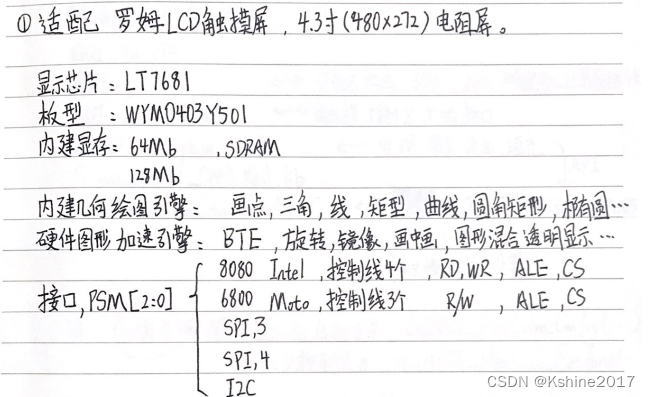 ① 适配 罗姆LCD触摸屏，4.3寸(480×272)电阻屏。
显示芯片：LT7681
板型：WYM0403Y501
内建显存：64Mb ，SDRAM
128Mb
内建几何绘图引擎：画点，三角，线，矩型，曲线，圆角矩形，椭圆…
硬件图形加速引擎：BTE，旋转，镜像，画中画，图形混合透明显示…
接口，PSM[2:0]
8080 Intel，控制线4个，RD，WR，ALE，CS
6800 Moto，控制线3个 R/W，ALE，CS
SPI,3
SPI,4
I2C
CSDN @Kshine2017